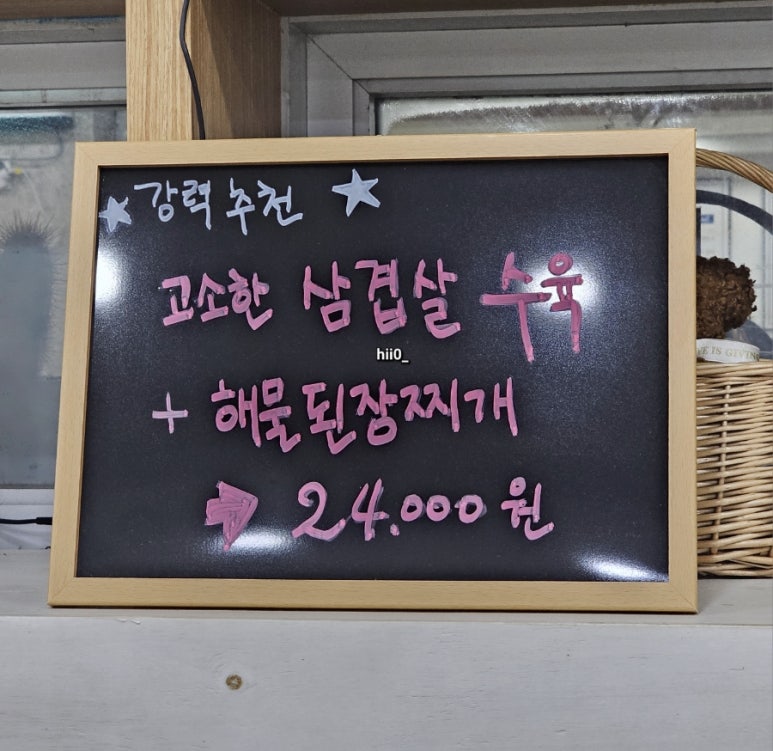 ★ 강력추천 ★
고소한 삼겹살 수육
hii0_
+ 해물된장찌개
➔ 24.000원
E IS GIVING